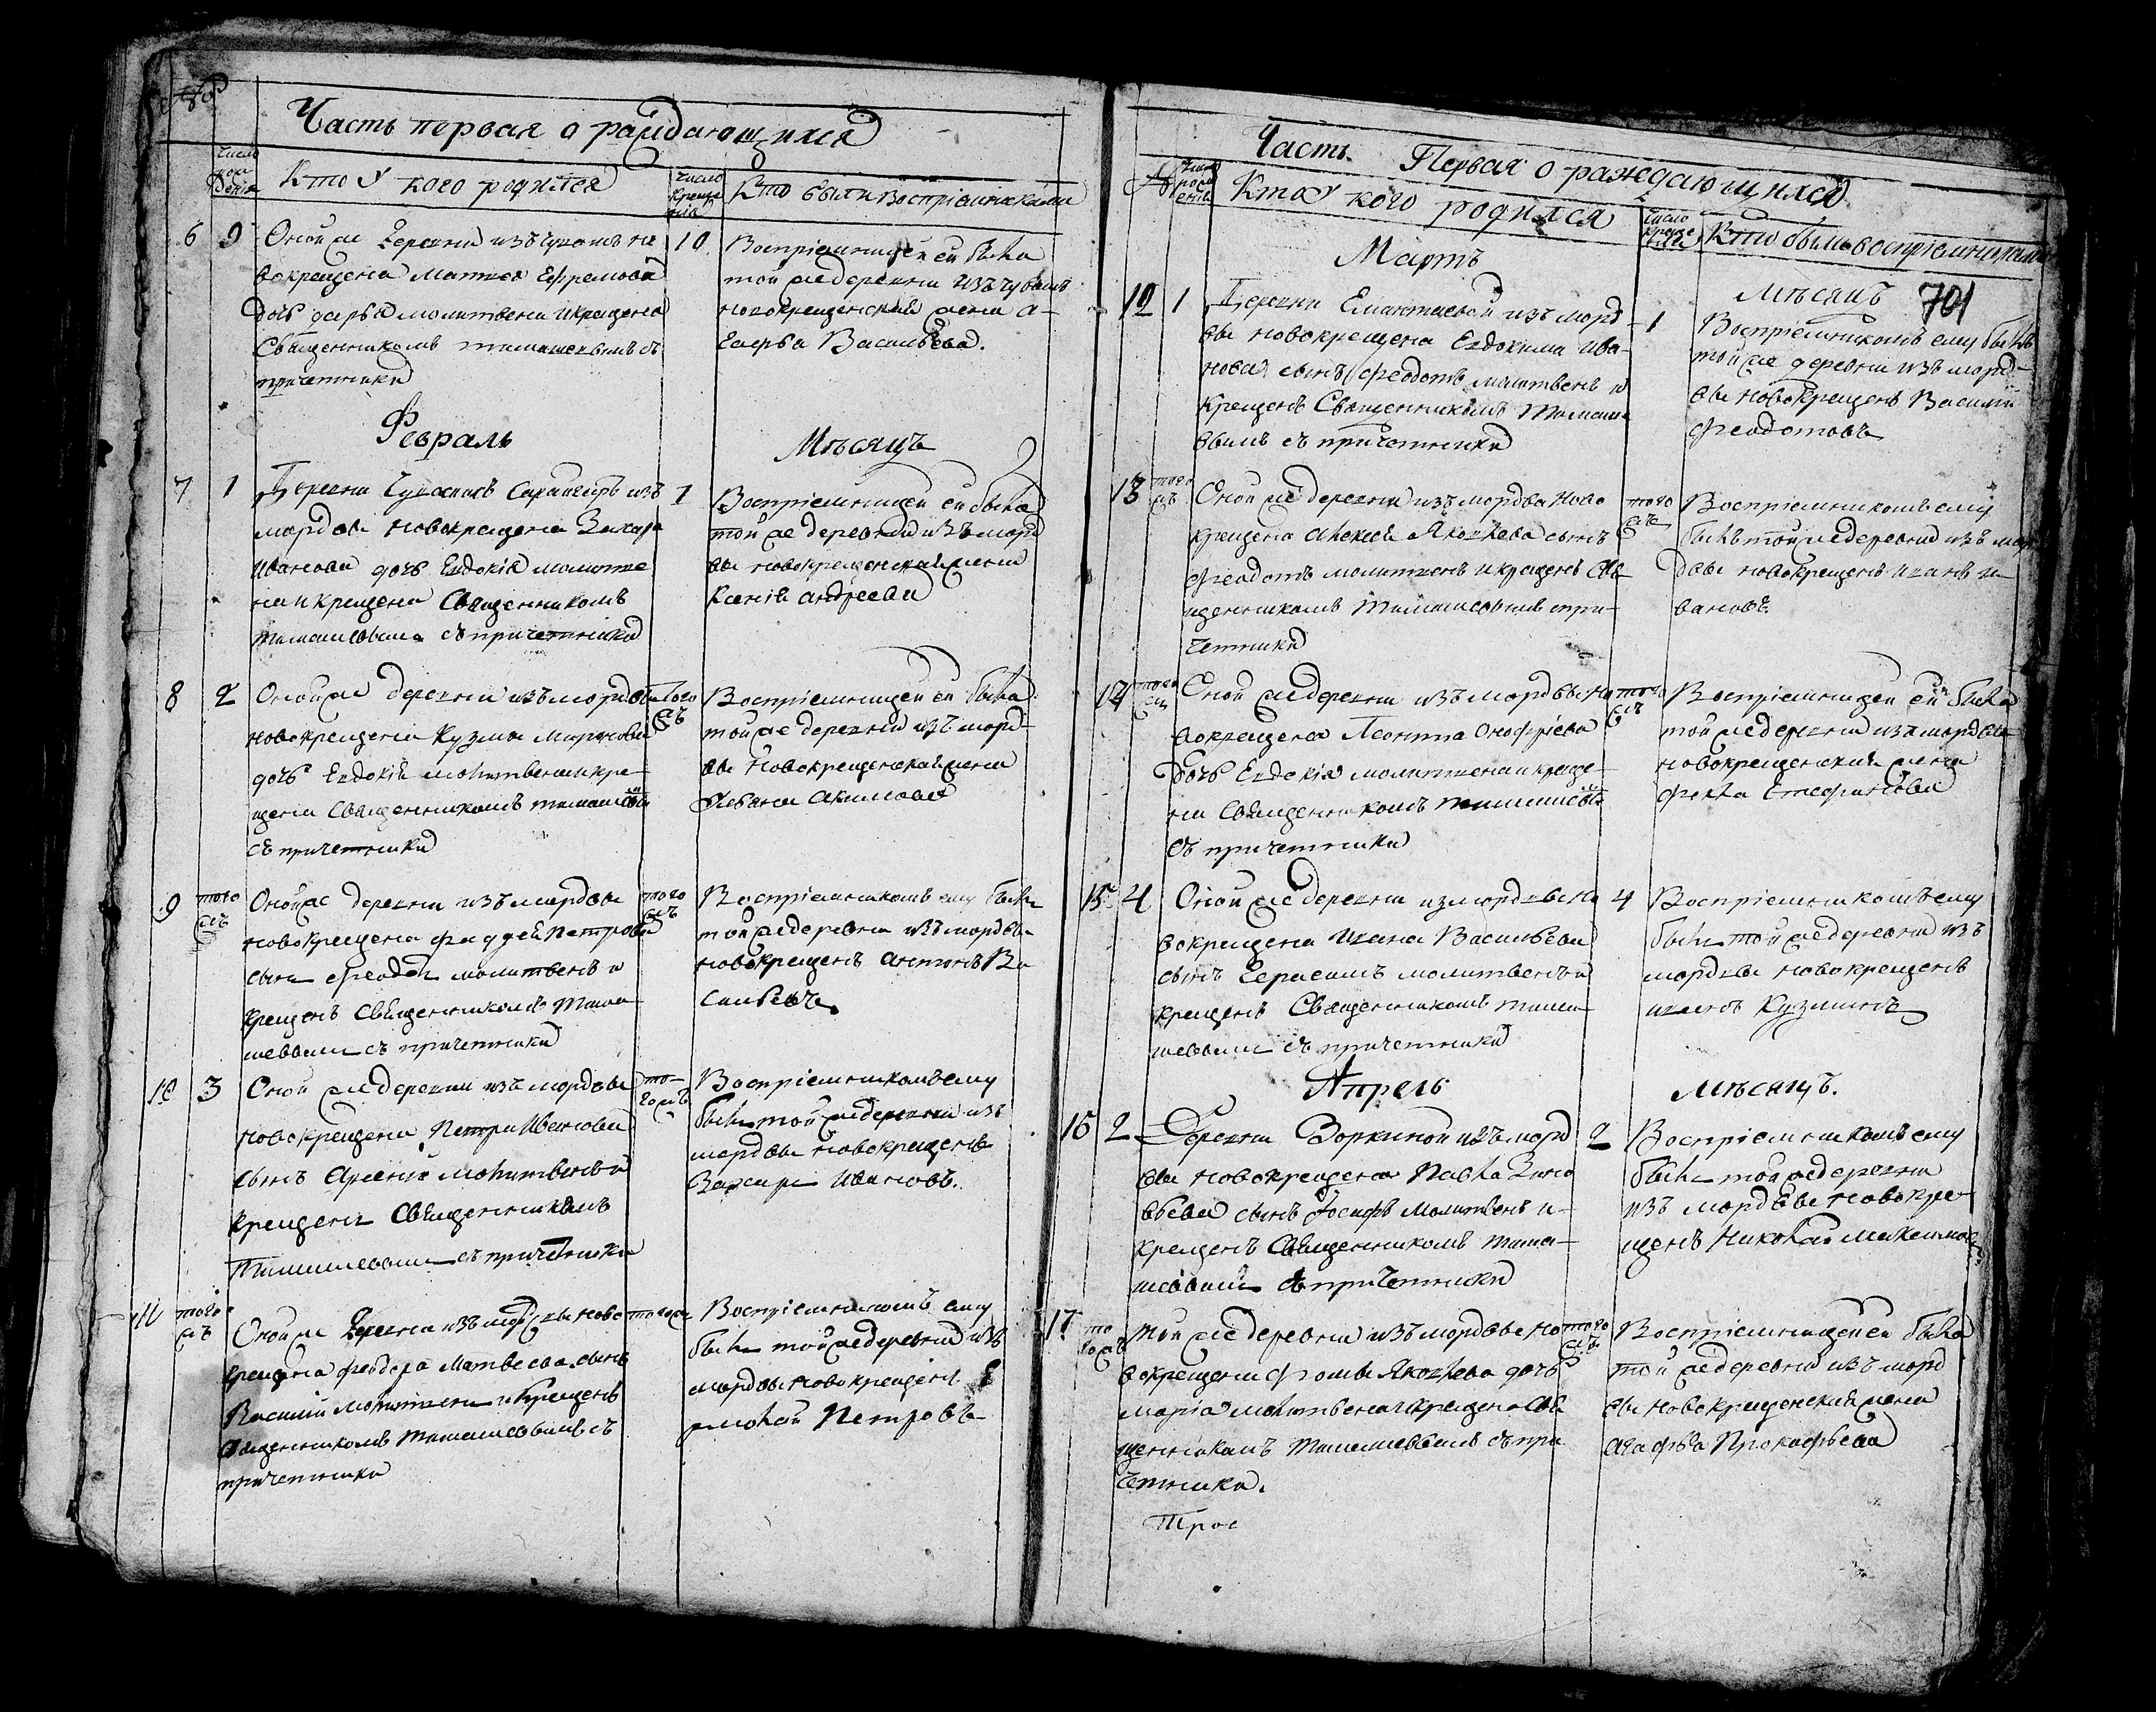 Часть первая о раждающихся
№
число рождения
Кто У кого родился
число крещения
Кто были Воспріемниками
6
9
Оной же деревни изъ чувашъ но
вокрещена Матвея Ефремова
дочь дарья молитвена и крещена
Священникомъ тимашевымъ съ
причетники
10
Воспріемницей ей была
той же деревни изъ чувашъ
новокрещенский жена
Васильева.
Февраль
Мѣсяцъ
7
1
Деревни изъ
мордвы новокрещена Захара
Иванова дочь Евдокія молитве
на и крещена Священникомъ
тимашевымъ съ причетники
1
Воспріемницей ей была
той же деревни изъ морд
вы новокрещенская жена
Ксенія андреева
8
2
Оной же деревни изъ мордвы
новокрещена Кузмы Миронова
дочь Евдокія молитвена и кре-
щена Священникомъ тимашевымъ
съ причетники
того жъ
Воспріемницей ей была
той же деревни изъ морд-
вы новокрещенская жена
Акимова
9
того жъ
Оной же деревни изъ мордвы
новокрещена фаддей Петрова
сынъ феодотъ молитвенъ и
крещенъ Священникомъ Тима-
шевымъ съ причетники
того жъ
Воспріемникомъ ему былъ
той же деревни изъ мордвы
новокрещенъ антонъ Ва
сильевъ
10
3
Оной же деревни изъ мордвы
новокрещена Петра Иванова
сынъ Арсеній молитвенъ и
крещенъ Священникомъ
Тимашевымъ съ причетники
то-
гожъ
Воспріемникомъ ему
былъ той же деревни изъ
мордвы новокрещенъ
Захаръ Ивановъ.
11
того жъ
Оной же деревни изъ мордвы ново
крещена феодора Матвеева сынъ
Василий молитвенъ и крещенъ
священникомъ тимашевымъ съ
причетники
того жъ
Воспріемникомъ ему
былъ той же деревни изъ
мордвы новокрещенъ Е
рмолай Петровъ
Часть Первая о раждающихся
№
число рожденія
Кто У кого родился
число крещенія
Кто былъ воспріемниками
Мартъ
Мѣсяцъ
701
12
1
Деревни изъ морд
вы новокрещена Евдокима Ива-
нова сынъ феодотъ молитвенъ и
крещенъ Священникомъ Тимаше
вымъ съ причетники
1
Воспріемникомъ ему былъ
той же деревни изъ морд-
вы новокрещенъ Василий
феодотовъ
13
того жъ
Оной же деревни изъ мордвы Ново
крещена Алексея Яковлева сынъ
феодотъ молитвенъ и крещенъ Свя
щенникомъ Тимашевымъ с при-
четники
того жъ
Воспріемникомъ ему
былъ той же деревни изъ мор
двы новокрещенъ Иванъ И-
вановъ.
14
того жъ
Оной же деревни изъ мордвы Но
вокрещена Леонтия Онофріева
дочь Евдокія молитвена и креще-
на Священникомъ тимашевымъ
съ причетники
того жъ
Воспріемницей ей была
той же деревни изъ мордвы
новокрещенския жена
фекла Стефанова
15
4
Оной же деревни из мордвы Но
вокрещена Ивана Васильева
сынъ Герасимъ молитвенъ и
крещенъ Священникомъ тима-
шевымъ съ причетники
4
Воспріемникомъ ему
былъ той же деревни изъ
мордвы новокрещенъ
иванъ Кузминъ
Апрель
Мѣсяцъ.
16
2
Деревни изъ морд
вы новокрещена Павла Зино
вьева сынъ Іосифъ молитвенъ и-
крещенъ Священникомъ тима-
шевымъ съ причетники
2
Воспріемникомъ ему
былъ той же деревни
изъ мордвы новокре-
щенъ Николай Максимовъ
17
то
гожъ
той же деревни изъ мордвы но
вокрещена фомы Яковлева дочь
Марія молитвена и крещена Свя
щенникомъ тимашевымъ съ при
четники.
того жъ
Воспріемницей ей была
той же деревни изъ морд
вы новокрещенския жена
агафья Прокофьева